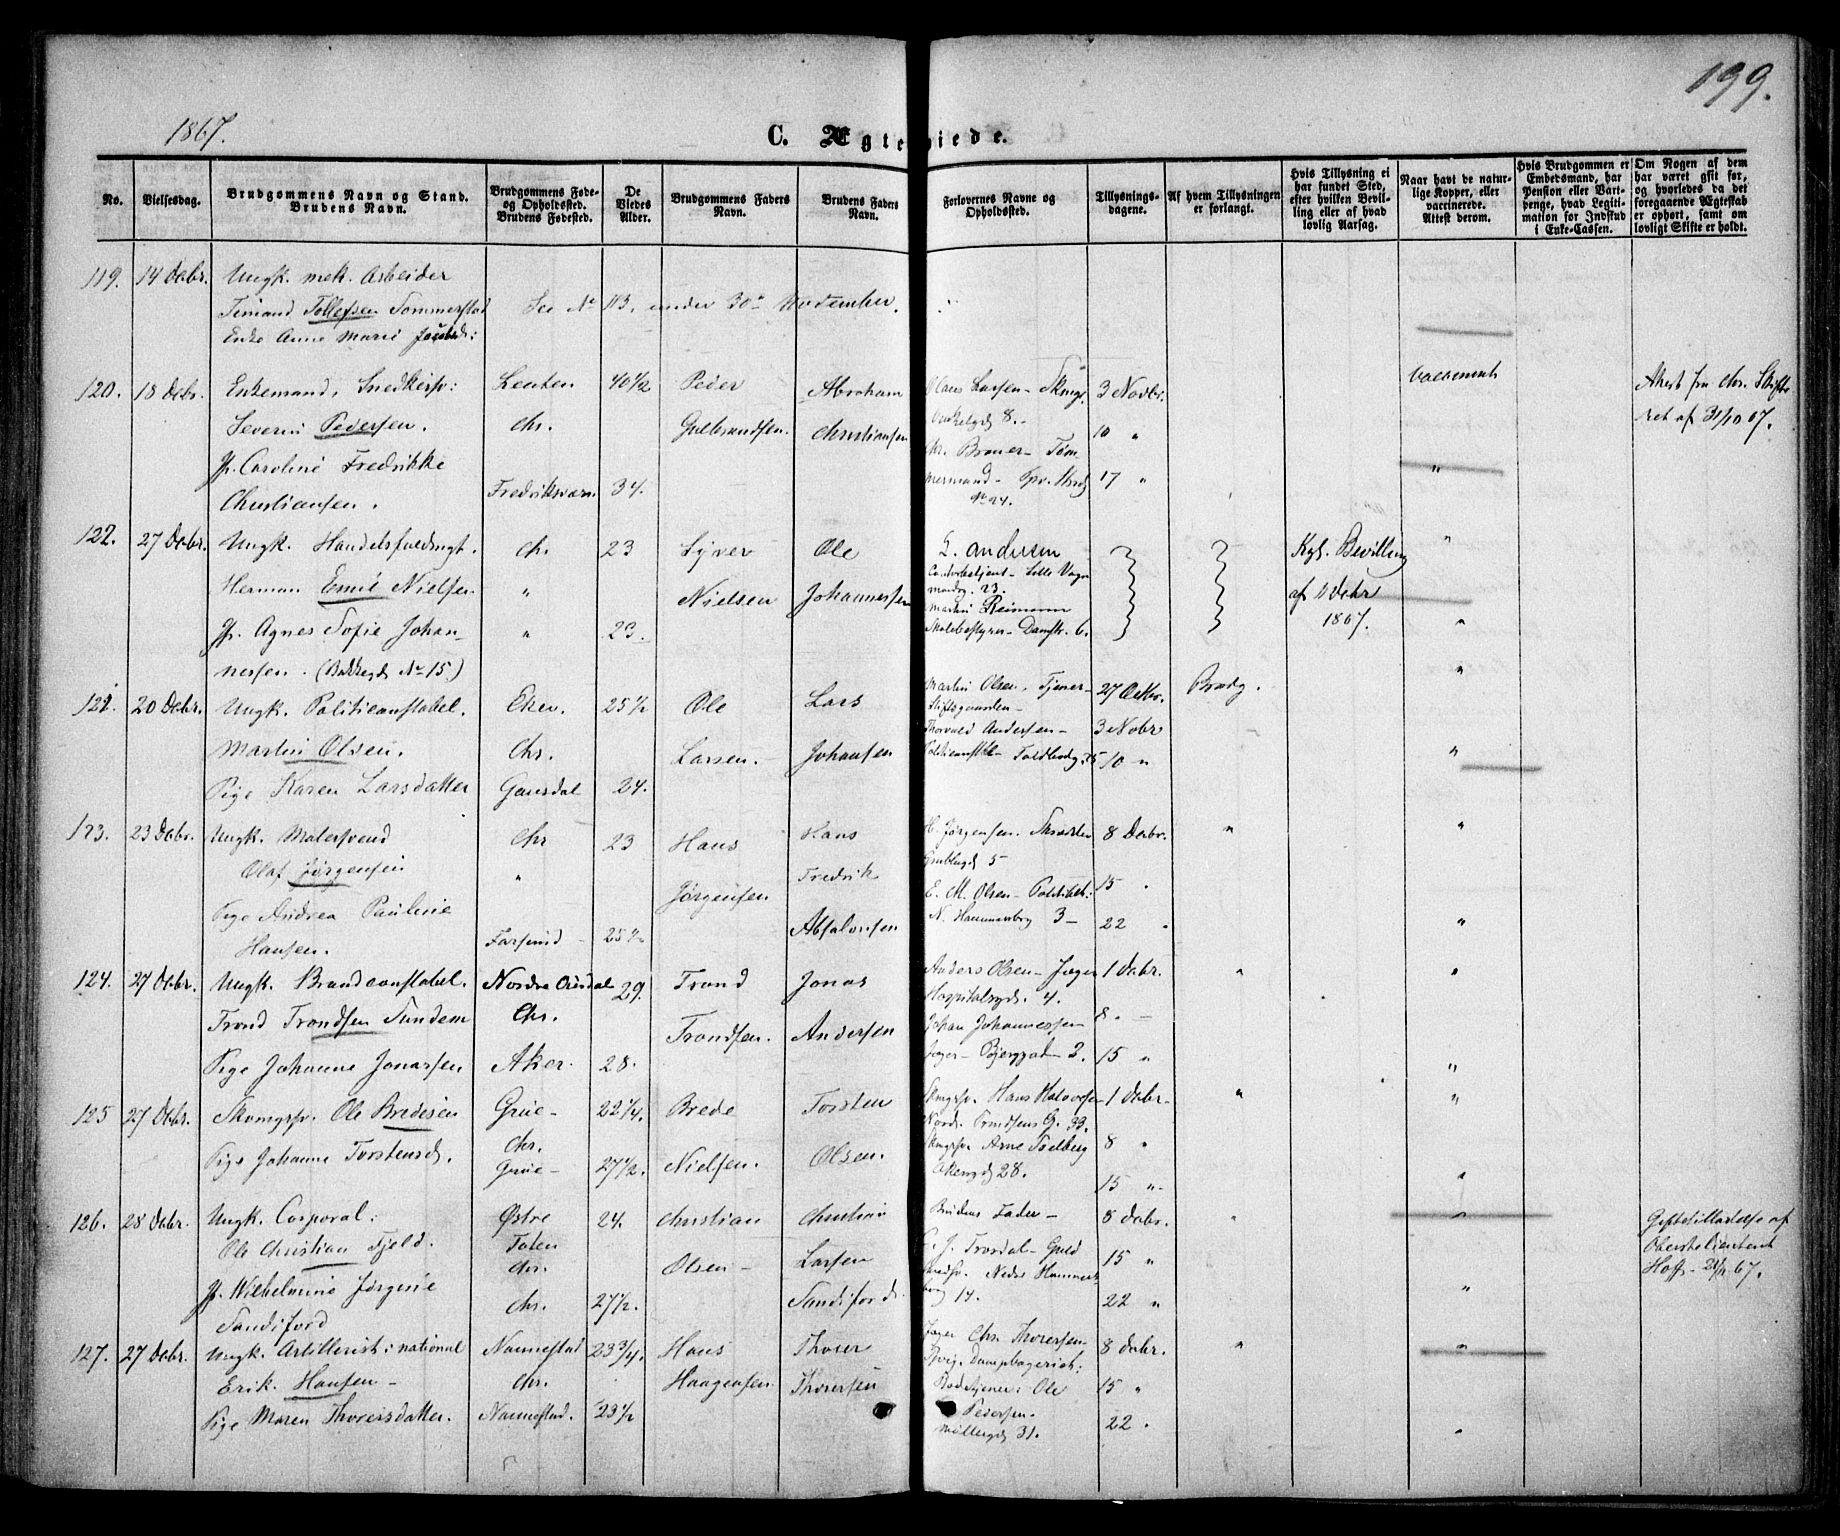 199.
1867.
C. Ægteviede.
No.
Vielsesdag.
Brudgommens Navn og Stand.
Brudens Navn.
Brudgommens Føde-
og Opholdssted.
Brudens Fødested.
De
Viedes
Alder.
Brudgommens Faders
Navn.
Brudens Faders
Navn.
Forlovernes Navne og
Opholdssted.
Tillysnings-
dagene.
Af hvem Tillysningen
er forlangt.
Hvis Tillysning ei
har fundet Sted,
efter hvilken Bevil-
ling eller af hvad
lovlig Aarsag.
Naar havt de natur-
lige Kopper, eller
vaccinerede.
Attest derom.
Hvis Brudgommen er
Embedsmand, har
Pension eller Vart-
penge, hvad Legiti-
mation for Indskud
i Enke-Cassen.
Om Nogen af dem
har været gift før,
og hvorledes da det
foregaaende Ægteskab
er ophørt, samt om
lovligt Skifte er holdt.
119. 14 Debr. Ungk. mek. Arbeider
Timand Tollefsen Tommerstad See No 113, under 30te November.
Enke Anne Marie Jacobsd:
120. 18 Debr. Enkemand, Snedkersv: Leuten 40 1/2 Peder Abraham Olaus Larsen - Skmgr. 3 Novbr. Vaccinerede Attest fra Chr. Skifte
Severin Pedersen. Chr. Gulbrandsen. Christiansen 8. 10 " ret af 31/10 67.
P. Caroline Fredrikke Chr. Broner - Tøm-
Christiansen. Fredriksværn 34. mermand - No 24. 17 " "
122. 27 Debr. Ungk. Handelsfuldmgt. Chr. 23 Syver Ole L. Andersen Kgl. Bevilling "
Herman Emil Nielsen " Nielsen Johannessen Contorbetjent - Lille Vogn-
mandsg. 23. af 11 Debr
P. Agnes Sofie Johan- " 23. Martin Reimann
Skolebestyrer - Damstr. 6. 1867. "
nessen. (Bakkegd No 15.) "
121. 20 Debr. Ungk. Politieconstabel. Eker. 25 1/2 Ole Lars Martin Olsen, Tjener - 27 Octbr. Brudg.
Stiftsgaarden -
Martin Olsen. Chr. Larsen. Johansen Thorvald Andersen - 3 Nobr
Politieconstbl - Toldbodg. 25 10 " "
Pige Karen Larsdatter Gausdal 24.
123. 23 Debr. Ungk. Malersvend Chr 23 Hans Hans H. Jørgensen. Skrædder 8 Debr. " "
Olaf Jørgensen " Jørgensen Fredrik Grubbegd 5
E. M. Olsen - Politibt: 15 "
Pige Andrea Pauline Absalonsen N. Hammersborg 3 - 22 " "
Hansen. Farsund - 25 1/2
124. 27 Debr. Ungk. Brandconstabel. Nordre Aurdal 29. Trond Jonas Anders Olsen - Jæger 1 Debr. " "
Hospitalsgd. 4.
Trond Trondsen Tundem Chr. Trondsen. Andersen Johan Johannessen 8. -
Pige Johanne Jonassen Aker. 28. Jæger - Bjerggad 2. 15 " "
125 27 Debr. Skomgsv. Ole Bredesen Grue - 22 1/4. Brede Torsten Skmgsv. Hans Halvorsen - 1 Debr - " "
Chr. Nordr. G. 33.
Pige Johanne Torstensd. Grue - 27 1/2. Nielsen. Olsen. Skmgsv. Arne 8 "
Akersgd 28. 15 " "
126. 28 Debr. Ungk. Corporal: Østre 24. Christian Christian Brudens Fader - 8 Debr. " " Giftetilladelse af
Ole Christian Fjeld. Toten Olsen - Larsen C. J. Trosdal - Guld 15 " Oberstlieutenant
Chr. smedsv. Nedre Hammers Hoff - 21/11 67.
P. Wilhelmine Jørgine Chr. 27 1/2. Sandiford. borg 14. 22 " "
Sandiford
127. 27 Debr. Ungk. Artillerist: national Nannestad 23 3/4. Hans Thorer Jæger Chr. Thoresen - 8 Debr. " "
Erik Hansen - Chr. Haagensen Thoresen Ole 15 "
Pige Maren Thorersdatter. Nannestad. 23 1/2 Pedersen. 22 "
Møllergd 31.